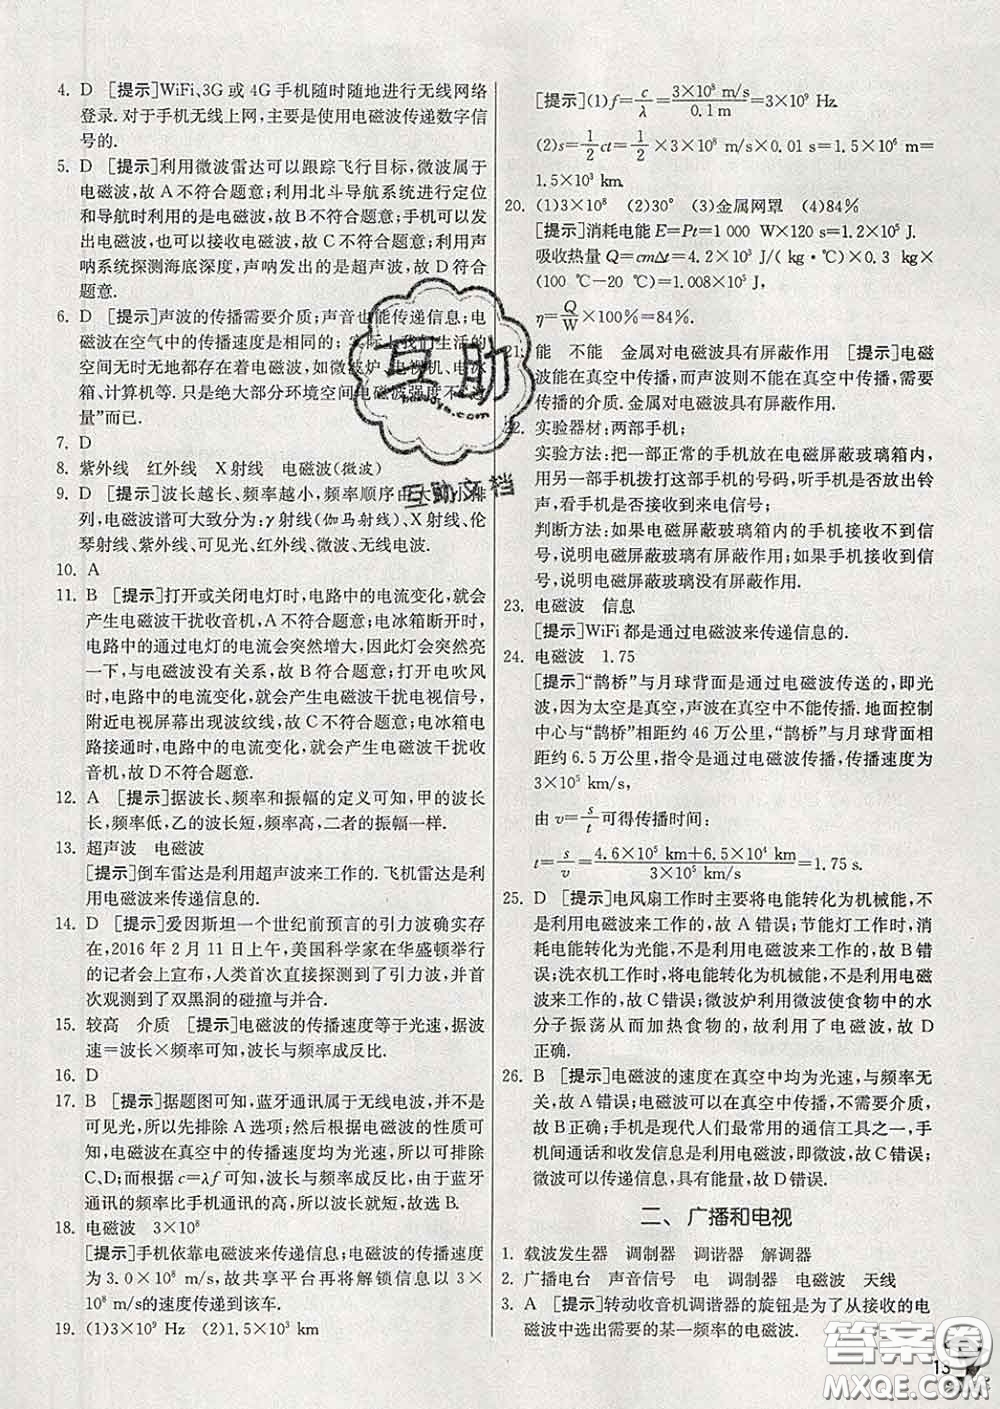 4. D [提示]WiFi、3G 或 4G 手机随时随地进行无线网络
登录. 对于手机无线上网,主要是使用电磁波传递数字信
号的.
5. D [提示]利用微波雷达可以跟踪飞行目标,微波属于
电磁波,故 A 不符合题意;利用北斗导航系统进行定位
和导航时利用的是电磁波,故 B 不符合题意;手机可以发
出电磁波,也可以接收电磁波,故 C 不符合题意;利用声
呐系统探测海底深度,声呐发出的是超声波,故 D 符合
题意.
6. D [提示]声波的传播需要介质;声音也能传递信息;电
磁波在空气中的传播速度是相同的;实际上我们生活的
空间无时无地都存在着电磁波,如微波炉、电视机、电冰
箱、计算机等. 只是绝大部分环境空间电磁波强度不“过
量”而已.
7. D
8. 紫外线 红外线 X 射线 电磁波(微波)
9. D [提示]波长越长、频率越小,频率顺序由大到小排
列,电磁波谱可大致分为:γ 射线(伽马射线)、X 射线、伦
琴射线、紫外线、可见光、红外线、微波、无线电波.
10. A
11. B [提示]打开或关闭电灯时,电路中的电流变化,就会
产生电磁波干扰收音机,A 不符合题意;电冰箱断开时,
电路中的通过电灯的电流会突然增大,因此灯会突然亮
一下,与电磁波没有关系,故 B 符合题意;打开电吹风
时,电路中的电流变化,就会产生电磁波干扰电视信号,
附近电视屏幕出现波纹线,故 C 不符合题意;电冰箱电
路接通时,电路中的电流变化,就会产生电磁波干扰收
音机,故 D 不符合题意.
12. A [提示]据波长、频率和振幅的定义可知,甲的波长
长,频率低,乙的波长短,频率高,二者的振幅一样.
13. 超声波 电磁波
[提示]倒车雷达是利用超声波来工作的. 飞机雷达是利
用电磁波来传递信息的.
14. D [提示]爱因斯坦一个世纪前预言的引力波确实存
在,2016 年 2 月 11 日上午,美国科学家在华盛顿举行
的记者会上宣布,人类首次直接探测到了引力波,并首
次观测到了双黑洞的碰撞与并合.
15. 较高 介质 [提示]电磁波的传播速度等于光速,据波
速=波长×频率可知,波长与频率成反比.
16. D
17. B [提示]据题图可知,蓝牙通讯属于无线电波,并非
可见光,所以先排除 A 选项;然后根据电磁波的性质可
知,电磁波在真空中的传播速度均为光速,所以可排除
C、D;再根据 c=λf 可知,波长与频率成反比,由于蓝牙
通讯的频率比手机通讯的高,所以波长就短,故选 B.
18. 电磁波 3×10⁸
[提示]手机依靠电磁波来传递信息;电磁波的传播速度
为 3.0×10⁸ m/s,故共享平台再将解锁信息以 3×
10⁸ m/s的速度传递到该车.
19. (1)3×10⁹ Hz (2)1.5×10³ km
[提示](1)f=c/λ=3×10⁸ m/s/0.1 m=3×10⁹ Hz.
(2)s=1/2ct=1/2×3×10⁸ m/s×0.01 s=1.5×10⁶ m=
1.5×10³ km.
20. (1)3×10⁸ (2)30° (3)金属网罩 (4)84%
[提示]消耗电能 E=Pt=1 000 W×120 s=1.2×10⁵ J.
吸收热量 Q=cmΔt=4.2×10³ J/( kg·℃)×0.3 kg×
(100 ℃-20 ℃)=1.008×10⁵ J,
η=Q/W×100%=84%.
21. 能 不能 金属对电磁波具有屏蔽作用 [提示]电磁
波能在真空中传播,而声波则不能在真空中传播,需要
传播的介质. 金属对电磁波具有屏蔽作用.
22. 实验器材:两部手机;
实验方法:把一部正常的手机放在电磁屏蔽玻璃箱内,
用另一部手机拨打这部手机的号码,听手机是否发出铃
声,看手机是否接收到来电信号;
判断方法:如果电磁屏蔽玻璃箱内的手机接收不到信
号,说明电磁屏蔽玻璃有屏蔽作用;如果手机接收到信
号,说明电磁屏蔽玻璃没有屏蔽作用.
23. 电磁波 信息
[提示]WiFi 都是通过电磁波来传递信息的.
24. 电磁波 1.75
[提示]“鹊桥”与月球背面是通过电磁波传送的,即光
波,因为太空是真空,声波在真空中不能传播. 地面控制
中心与“鹊桥”相距约 46 万公里,“鹊桥”与月球背面相
距约 6.5 万公里,指令是通过电磁波传播,传播速度为
3×10⁵ km/s,
由 v=s/t可得传播时间:
t=s/v=4.6×10⁵ km+6.5×10⁴ km/3×10⁵ km/s=1.75 s.
25. D [提示]电风扇工作时主要将电能转化为机械能,不
是利用电磁波来工作的,故 A 错误;节能灯工作时,消
耗电能转化为光能,不是利用电磁波来工作的,故 B 错
误;洗衣机工作时,将电能转化为机械能,不是利用电磁
波来工作的,故 C 错误;微波炉利用微波使食物中的水
分子振荡从而加热食物的,故利用了电磁波,故 D
正确.
26. B [提示]电磁波的速度在真空中均为光速,与频率无
关,故 A 错误;电磁波可以在真空中传播,不需要介质,
故 B 正确;手机是现代人们最常用的通信工具之一,手
机间通话和收发信息是利用电磁波,即微波,故 C 错误;
微波可以传递信息,具有能量,故 D 错误.
二、广播和电视
1. 载波发生器 调制器 调谐器 解调器
2. 广播电台 声音信号 电 调制器 电磁波 天线
3. A [提示]转动收音机调谐器的旋钮是为了从接收的电
磁波中选出需要的某一频率的电磁波.
互助
互助文档
答案圈
MXQE.COM